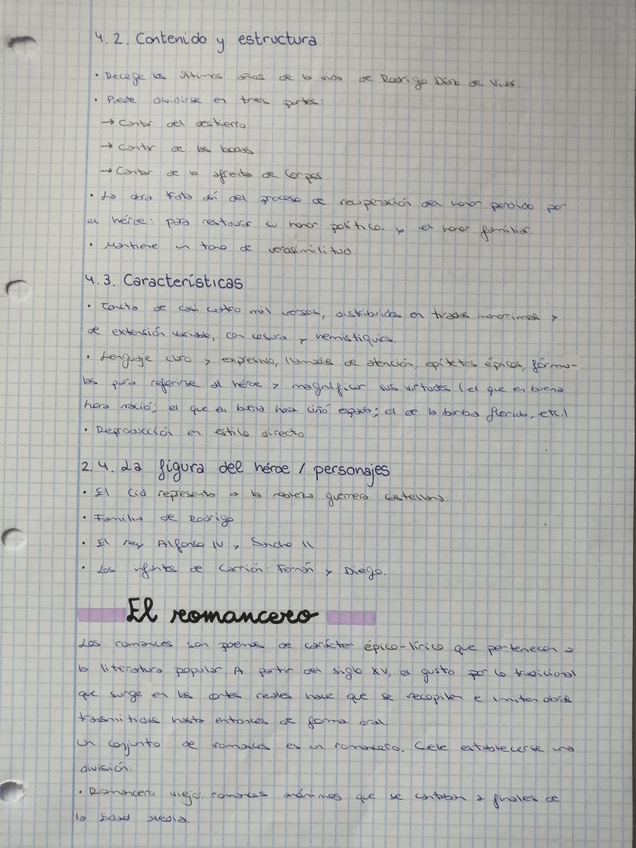 4.2. Contenido y estructura
• Recoge los últimos años de la vida de Rodrigo Díaz de Vivar.
• Puede dividirse en tres partes:
→ Cantar del destierro
→ Cantar de las bodas
→ Cantar de la afrenta de Corpes
• La obra trata así del proceso de recuperación del honor perdido por
el héroe: para restaurar su honor político y el honor familiar
• Mantiene un tono de verosimilitud.
4.3. Características
• Consta de casi cuatro mil versos, distribuidos en tiradas monorrimas y
de extensión variable, con cesura y hemistiquios.
• Lenguaje claro y expresivo, llamadas de atención, epítetos épicos, fórmu-
las para referirse al héroe y magnificar sus virtudes (el que en buena
hora nació; el que en buena hora ciñó espada; el de la barba florida, etc.)
• Reproducción en estilo directo
2.4. La figura del héroe / personajes
• El Cid representa a la nobleza guerrera castellana.
• Familia de Rodrigo
• El rey Alfonso IV y Sancho II
• Los infantes de Carrión: Fernán y Diego.
El romancero
Los romances son poemas de carácter épico-lírico que pertenecen a
la literatura popular. A partir del siglo XV, el gusto por lo tradicional
que surge en las cortes reales hace que se recopilen e imiten obras
trasmitidas hasta entonces de forma oral.
Un conjunto de romances es un romancero. Suele establecerse una
división:
• Romancero viejo: romances anónimos que se cantaban a finales de
la Edad Media.